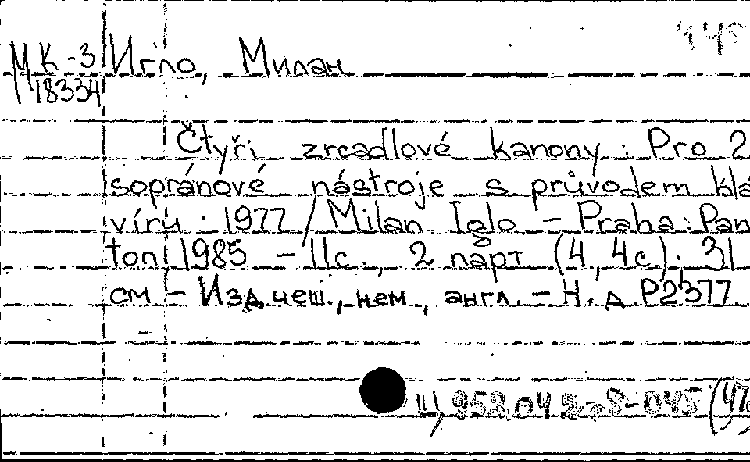 МК-3 Игло, Милан
18334
Čtyři zrcadlové kanony : Pro 2
sopránové nástroje s průvodem kla
víru : 1977 / Milan Iglo – Praha : Pan
ton, 1985 – 11с., 2 парт (4, 4с) ; 31
см – Изд. чеш., нем., англ. – Н. д. P2377